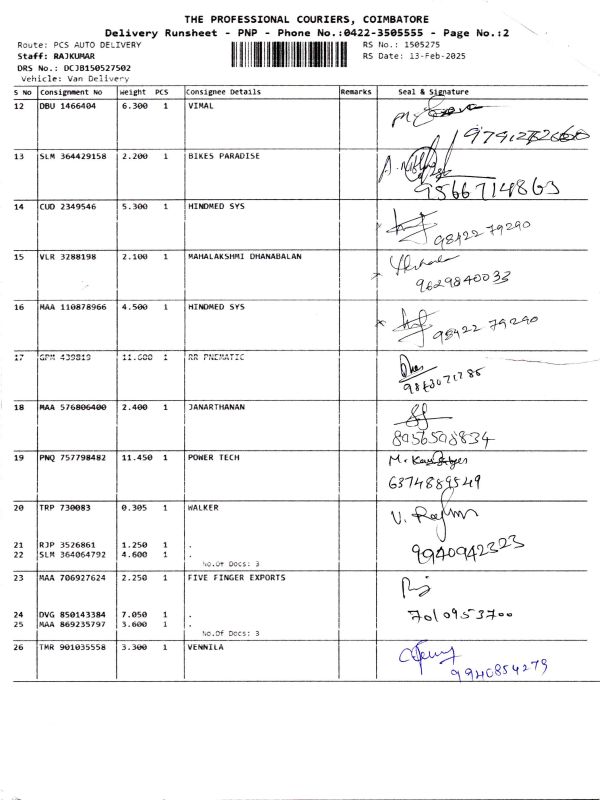 THE PROFESSIONAL COURIERS, COIMBATORE
Delivery Runsheet - PNP - Phone No.:0422-3505555 - Page No.:2
Route: PCS AUTO DELIVERY RS No.: 1505275
Staff: RAJKUMAR RS Date: 13-Feb-2025
DRS No.: DCJB150527502
Vehicle: Van Delivery
S No Consignment No Weight PCS Consignee Details Remarks Seal & Signature
12 DBU 1466404 6.300 1 VIMAL
13 SLM 364429158 2.200 1 BIKES PARADISE
9566714863
14 CUD 2349546 5.300 1 HINDMED SYS
98422 79290
15 VLR 3288198 2.100 1 MAHALAKSHMI DHANABALAN
9629840033
16 MAA 110878966 4.500 1 HINDMED SYS
98422 79290
17 GPM 439819 11.600 1 RR PNEMATIC
18 MAA 576806400 2.400 1 JANARTHANAN
8956598834
19 PNQ 757798482 11.450 1 POWER TECH
6374889549
20 TRP 730083 0.305 1 WALKER
21 RJP 3526861 1.250 1 .
22 SLM 364064792 4.600 1 .
9940942323
No.Of Docs: 3
23 MAA 706927624 2.250 1 FIVE FINGER EXPORTS
24 DVG 850143384 7.050 1 .
7010953700
25 MAA 869235797 3.600 1 .
No.Of Docs: 3
26 TMR 901035558 3.300 1 VENNILA
9940854279